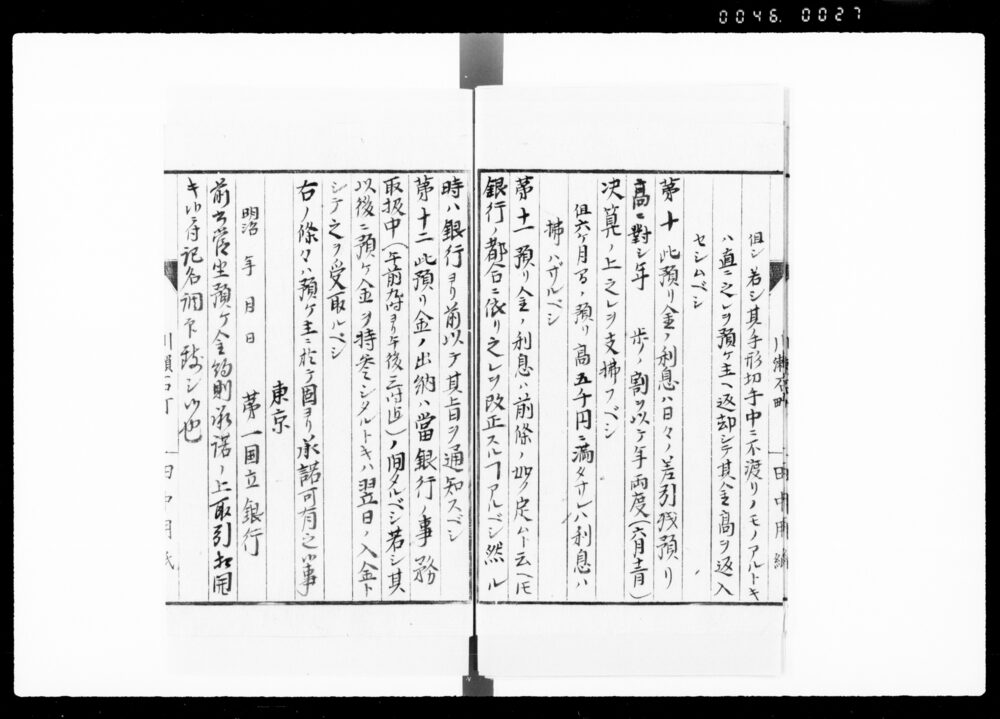 0046. 0027
但シ若シ其手形切手中ニ不渡リノモノアルトキ
ハ直ニ之レヲ預ケ主ヘ返却シテ其金高ヲ返入
セシムベシ
第十 此預リ金ノ利息ハ日々ノ差引残預リ
高ニ對シ年 歩ノ割ヲ以テ年両度(六月十二月)
决算ノ上之レヲ支拂フベシ
但六ケ月間ノ預リ高五千円ニ満タサレハ利息ハ
拂ハザルベシ
第十一 預リ金ノ利息ハ前條ノ如ク定ムト云ヘ𪜈
銀行ノ都合ニ依リ之レヲ改正スルヿアルベシ然ル
時ハ銀行ヨリ前以テ其旨ヲ通知スベシ
第十二 此預リ金ノ出納ハ當銀行ノ事務
取扱中(午前九時ヨリ午後三時迄)ノ間タルベシ若シ其
以後ニ預ケ金ヲ持参シタルトキハ翌日ノ入金ト
シテ之ヲ受取ルベシ
右ノ條々ハ預ケ主ニ於テ固ヨリ承諾可有之候事
東京
明治 年 月 日 第一国立銀行
前書當坐預ケ金約則承諾ノ上取引相開
キ候ニ付記名調印致シ候也